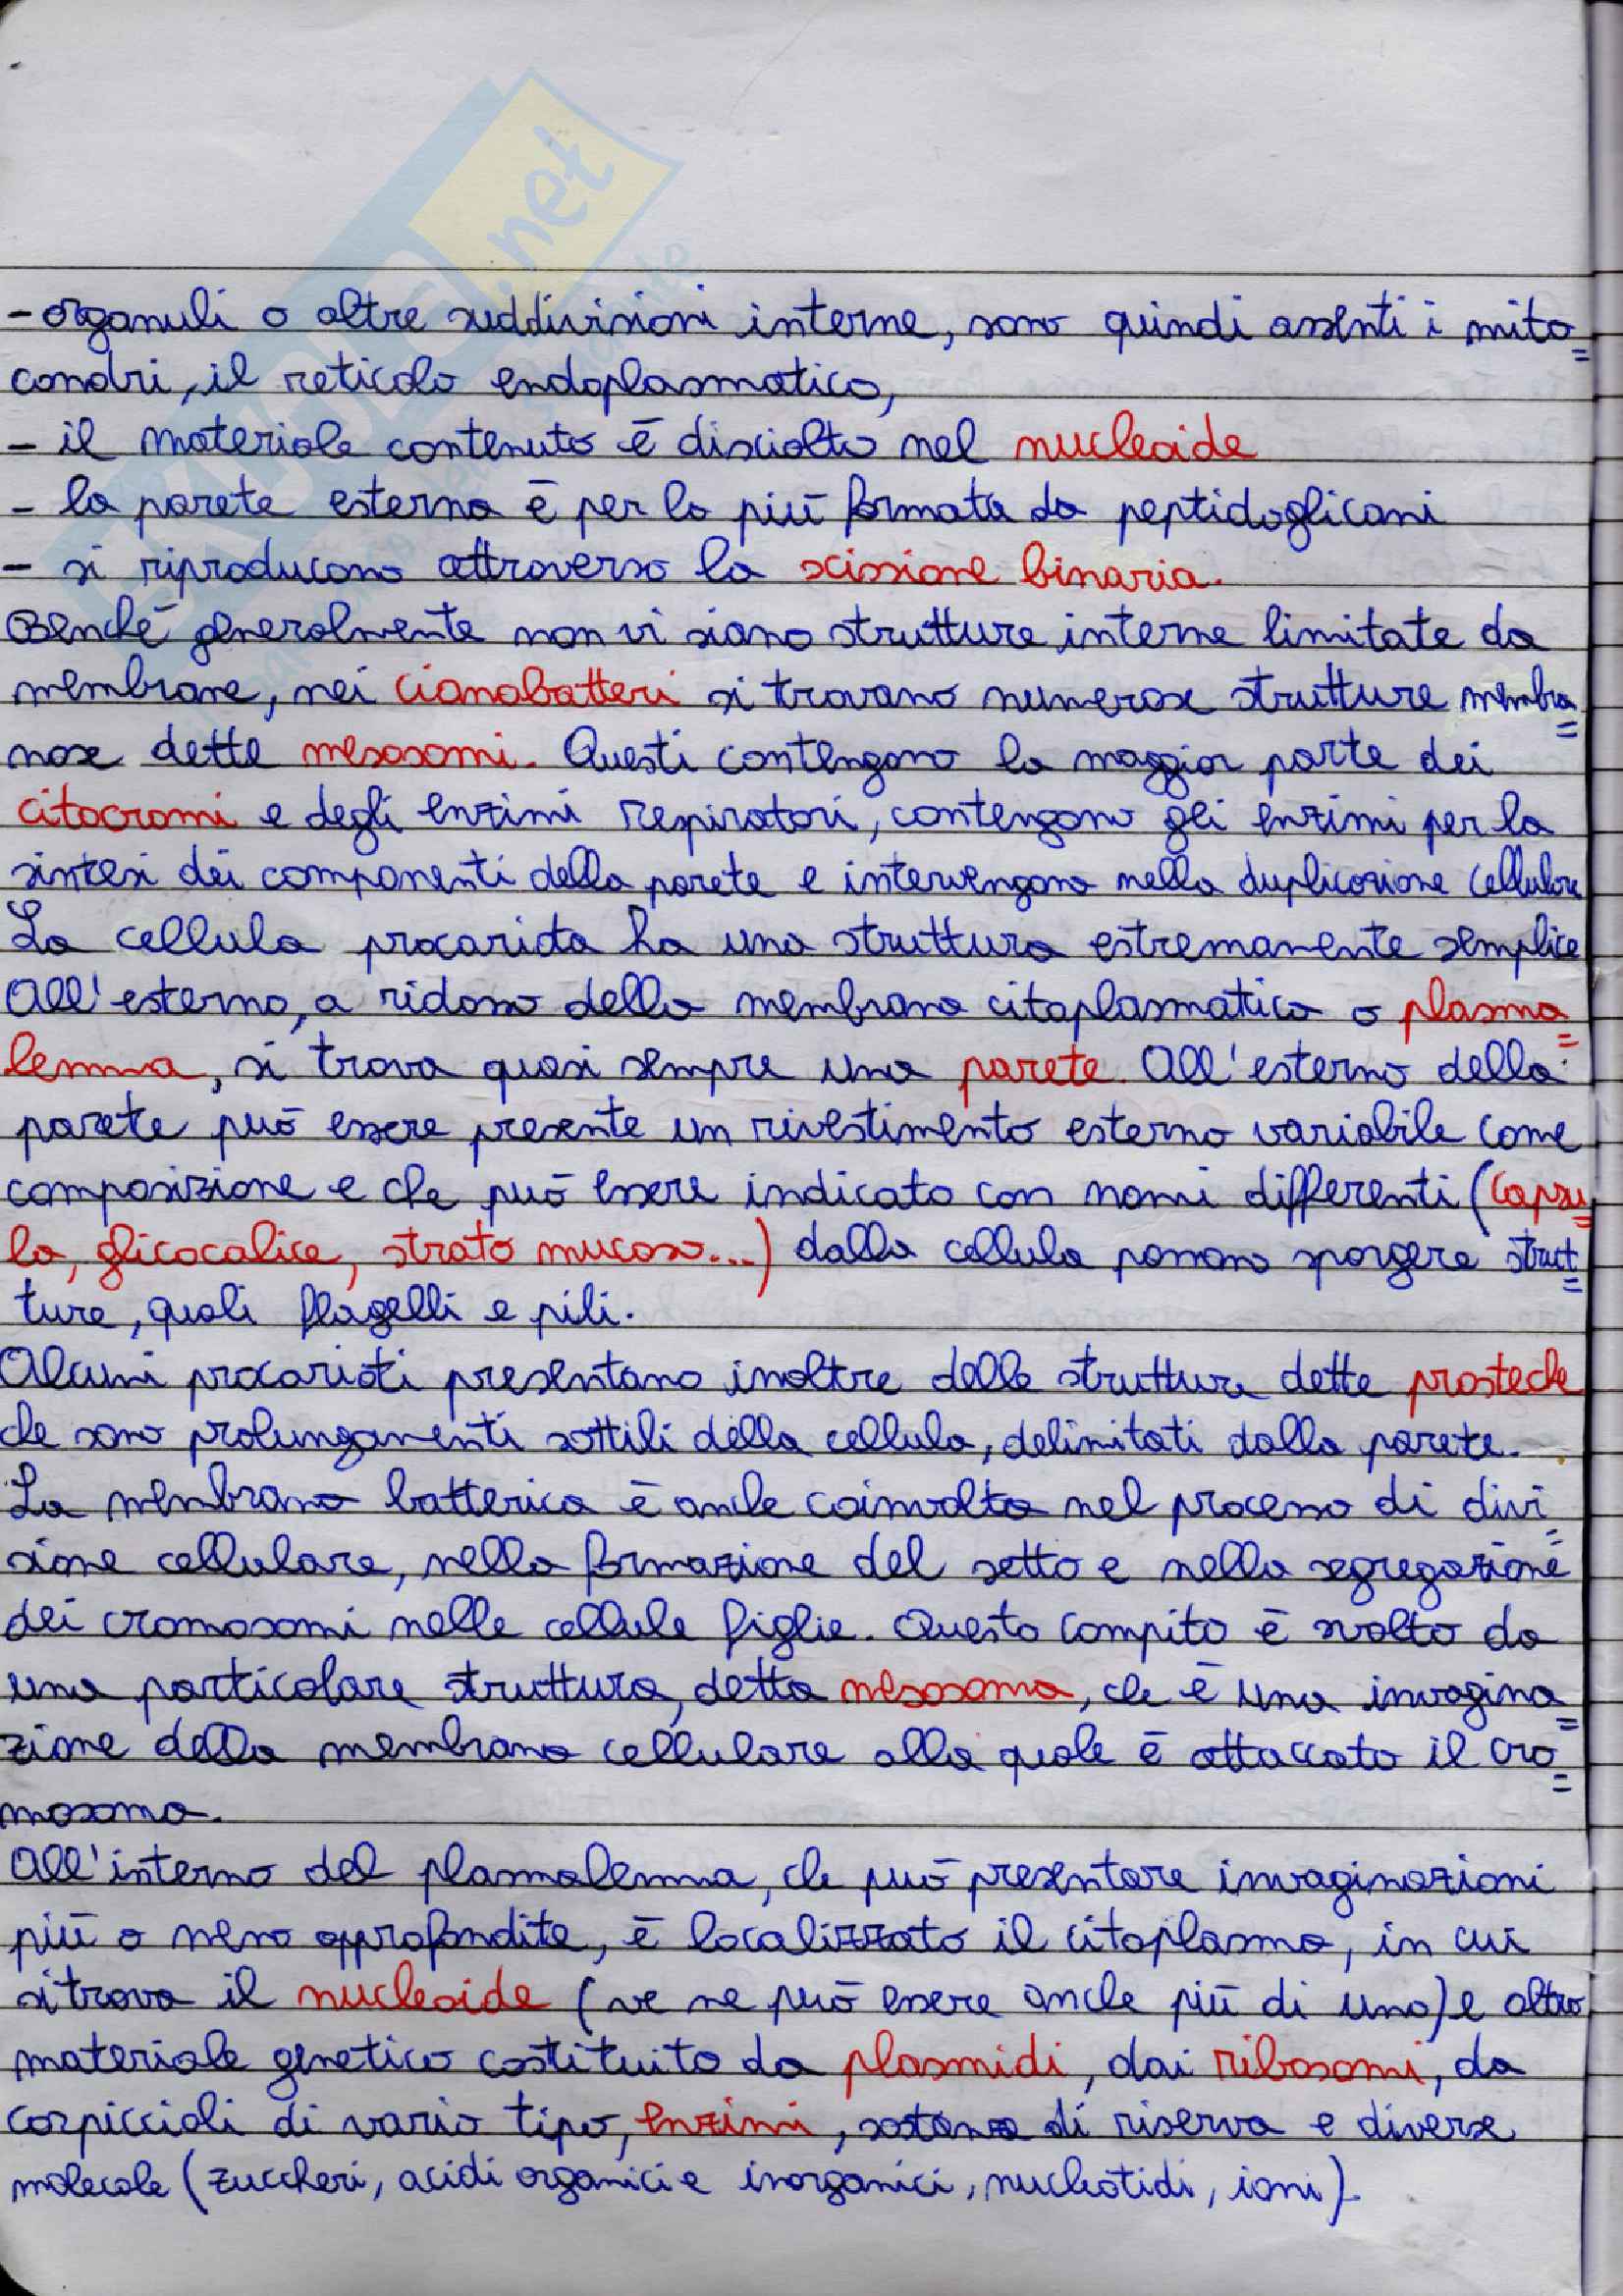 .net
- organuli o altre suddivisioni interne, sono quindi assenti i mito=
condri, il reticolo endoplasmatico,
- il materiale contenuto è disciolto nel nucleoide
- la parete esterna è per lo più formata da peptidoglicani
- si riproducono attraverso la scissione binaria.
Benché generalmente non vi siano strutture interne limitate da
membrane, nei cianobatteri si trovano numerose strutture membra=
nose dette mesosomi. Questi contengono la maggior parte dei
citocromi e degli enzimi respiratori, contengono gli enzimi per la
sintesi dei componenti della parete e intervengono nella duplicazione cellulare
La cellula procariota ha una struttura estremamente semplice
All'esterno, a ridosso della membrana citoplasmatica o plasma=
lemma, si trova quasi sempre una parete. All'esterno della
parete può essere presente un rivestimento esterno variabile come
composizione e che può essere indicato con nomi differenti (capsu=
la, glicocalice, strato mucoso...) dalla cellula possono sporgere strut=
ture, quali flagelli e pili.
Alcuni procarioti presentano inoltre delle strutture dette prosteche
che sono prolungamenti sottili della cellula, delimitati dalla parete.
La membrana batterica è anche coinvolta nel processo di divi=
sione cellulare, nella formazione del setto e nella segregazione
dei cromosomi nelle cellule figlie. Questo compito è svolto da
una particolare struttura, detta mesosoma, che è una invagina=
zione della membrana cellulare alla quale è attaccato il cro=
mosoma.
All'interno del plasmalemma, che può presentare invaginazioni
più o meno approfondite, è localizzato il citoplasma, in cui
si trova il nucleoide (ve ne può essere anche più di uno) e altro
materiale genetico costituito da plasmidi, dai ribosomi, da
corpiccioli di vario tipo, enzimi, sostanze di riserva e diverse
molecole (zuccheri, acidi organici e inorganici, nucleotidi, ioni).